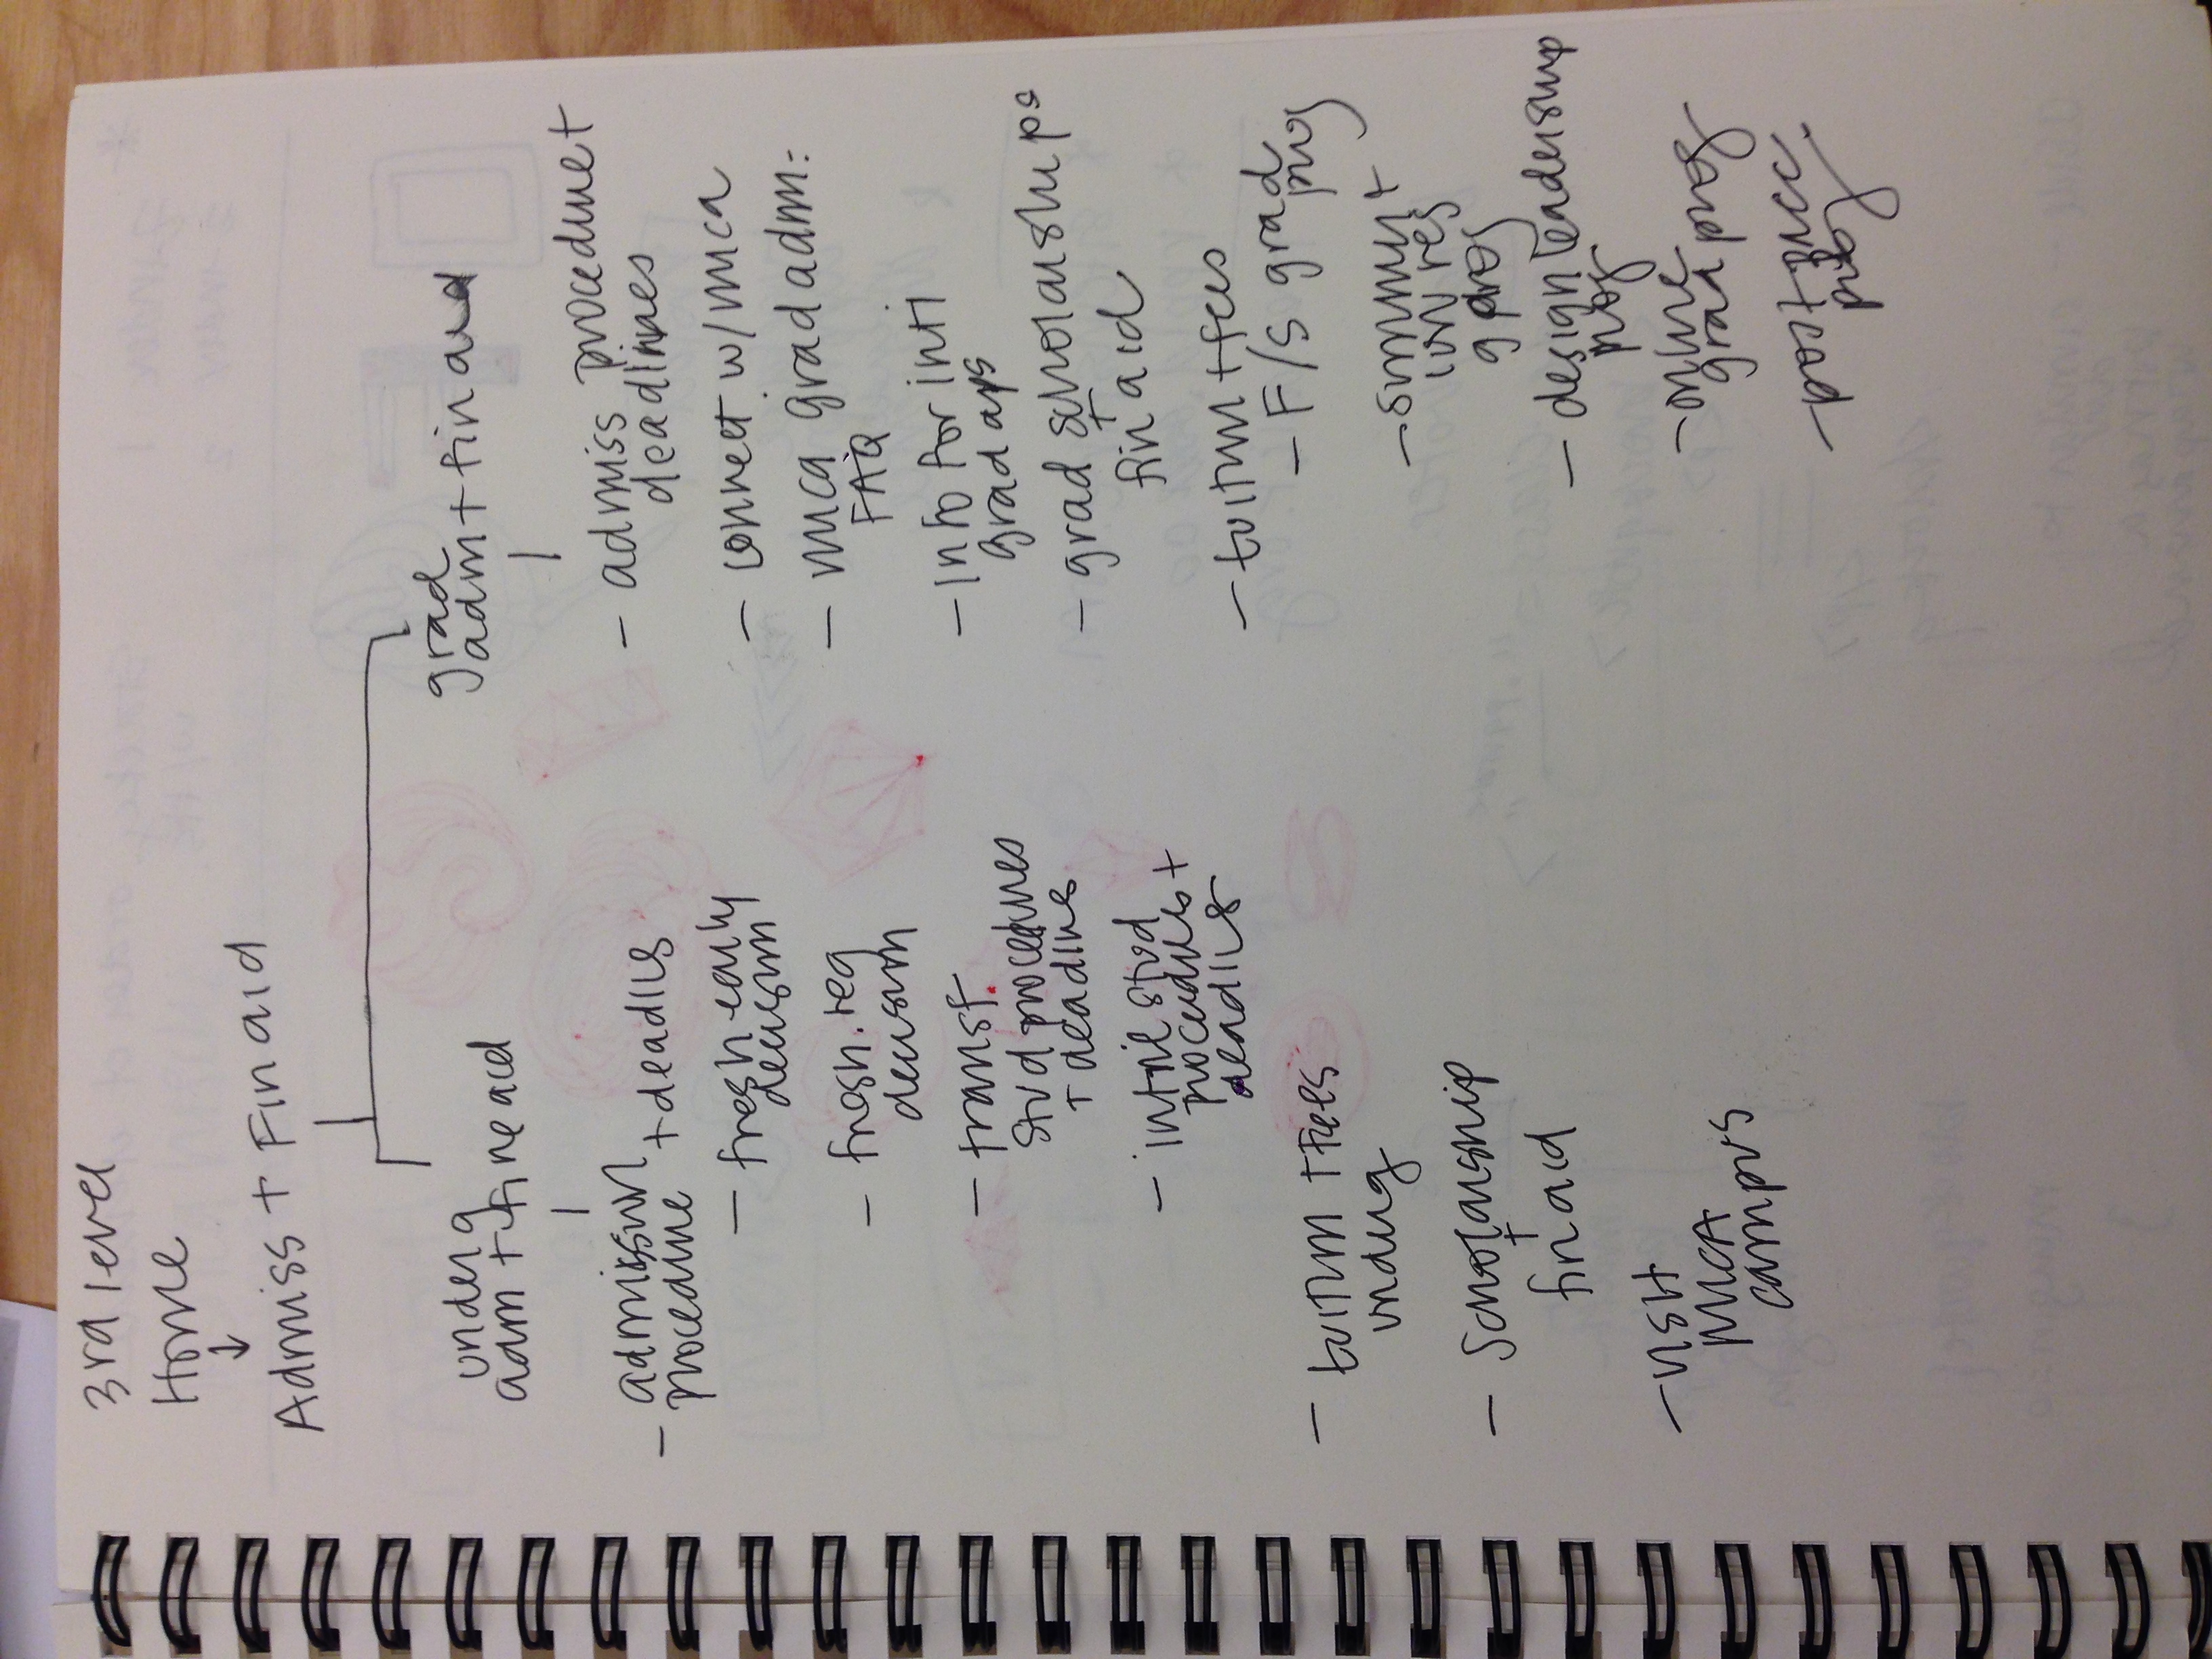 3rd level
Home
↓
Admiss + Fin aid
underg
adm + fine aid
- admission
procedure + deadlines
- fresh early
decision
- fresh. reg
decision
- transf.
stud procedures
+ deadlines
- intnl stud
procedures +
deadlines
- tuition + Fees
underg
- Scholarship
+
fin aid
- visit
MICA
campus
grad
adm + fin aid
- admiss procedure +
deadlines
- connect w/ mica
- mica grad adm:
FAQ
- Info for intl
grad aps
- grad scholarships
+
fin aid
- tuition + fees
- F/S grad
prog
- summer +
low res
g prog
- design leadership
prog
- online
grad prog
- post bacc
prog